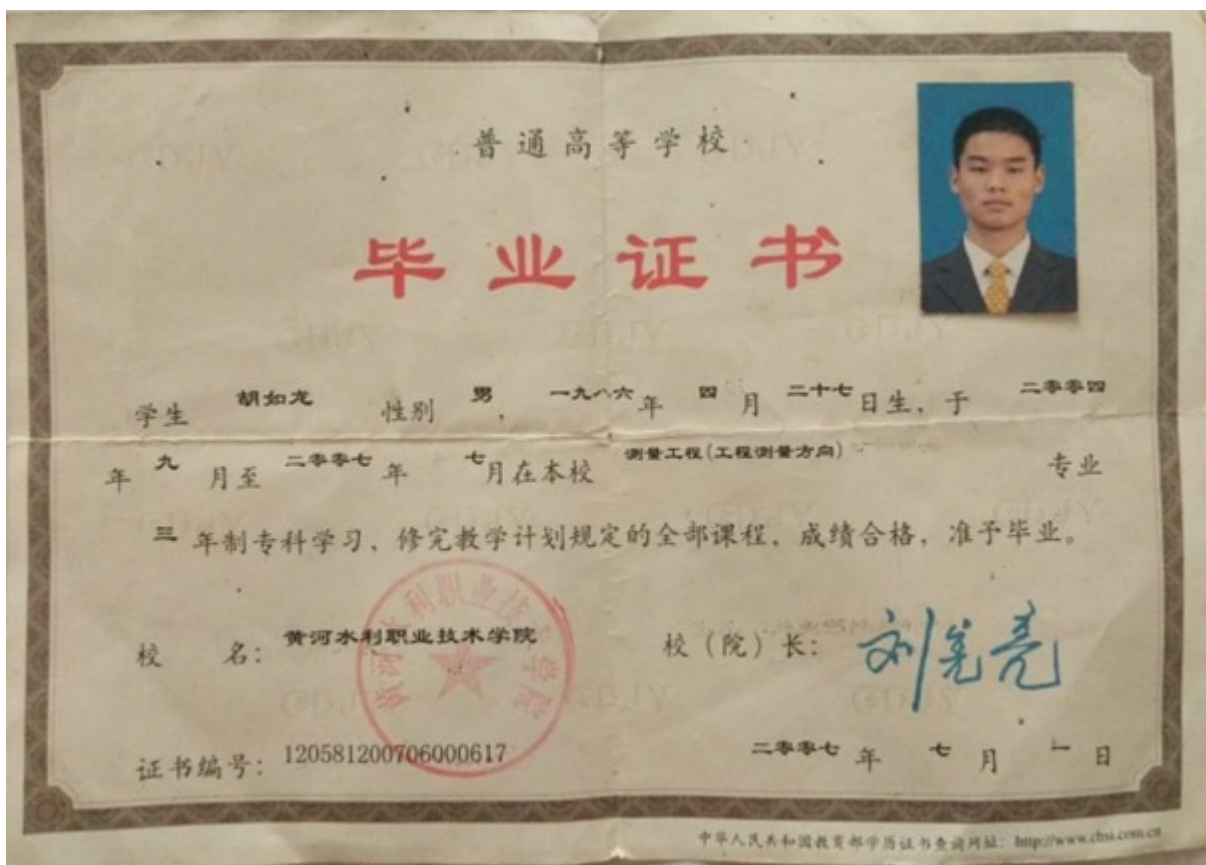 普通高等学校
毕业证书
学生 胡如龙 性别 男，一九八六年 四 月 二十七 日生，于 二零零四
年 九 月至 二零零七 年 七 月在本校 测量工程(工程测量方向) 专业
三 年制专科学习，修完教学计划规定的全部课程，成绩合格，准予毕业。
校 名： 黄河水利职业技术学院 校（院）长： 刘宪亮
黄河水利职业技术学院
证书编号： 120581200706000617 二零零七 年 七 月 一 日
中华人民共和国教育部学历证书查询网址： http://www.chsi.com.cn